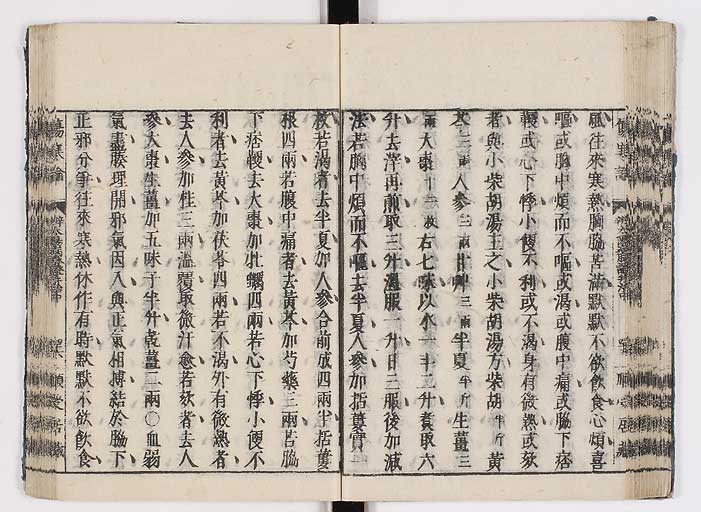 風往來寒熱胸脇苦滿默默不欲飲食心煩喜
嘔或胸中煩而不嘔或渴或腹中痛或脇下痞
鞕或心下悸小便不利或不渴身有微熱或欬
者與小柴胡湯主之小柴胡湯方柴胡半斤黃
芩三兩人參三兩甘草三兩半夏半斤生薑三
兩大棗十二枚右七味以水一斗二升煮取六
升去滓再煎取三升溫服一升日三服後加減
法若胸中煩而不嘔去半夏人參加括蔞實一
枚若渴者去半夏加人參合前成四兩半括蔞
根四兩若腹中痛者去黃芩加芍藥三兩若脇
下痞鞕去大棗加牡蠣四兩若心下悸小便不
利者去黃芩加茯苓四兩若不渴外有微熱者
去人參加桂三兩溫覆取微汗愈若欬者去人
參大棗生薑加五味子半升乾薑二兩○血弱
氣盡腠理開邪氣因入與正氣相搏結於脇下
正邪分爭往來寒熱休作有時默默不欲飲食
傷寒論